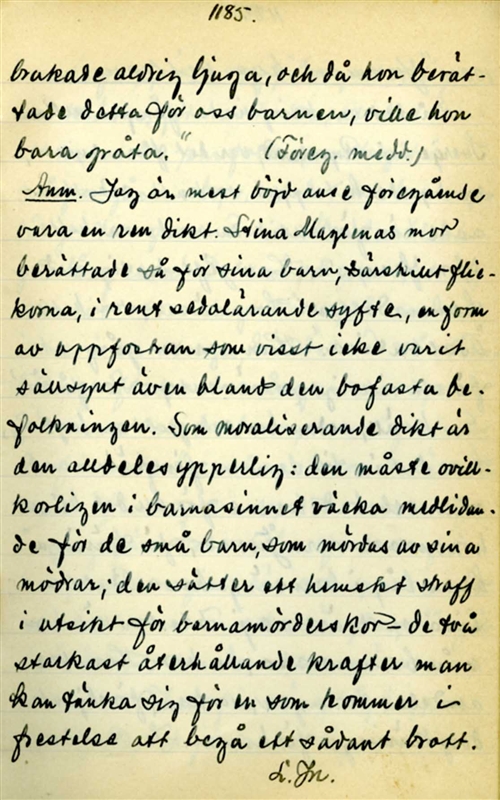 1185.
brukade aldrig ljuga, och då hon berät-
tade detta för oss barnen, ville hon
bara gråta." (Föreg. medd.)
Anm. Jag är mest böjd anse föregående
vara en ren dikt. Stina Maglenas mor
berättade så för sina barn, särskilt flic-
korna, i rent sedolärande syfte, en form
av uppfostran som visst icke varit
sällsynt även bland den bofasta be-
folkningen. Som moraliserande dikt är
den alldeles ypperlig: den måste ovill-
korligen i barnasinnet väcka medlidan-
de för de små barn, som mördas av sina
mödrar; den sätter ett hemskt straff
i utsikt för barnamörderskor – de två
starkast återhållande krafter man
kan tänka sig för en som kommer i
frestelse att begå ett sådant brott.
L. Jn.